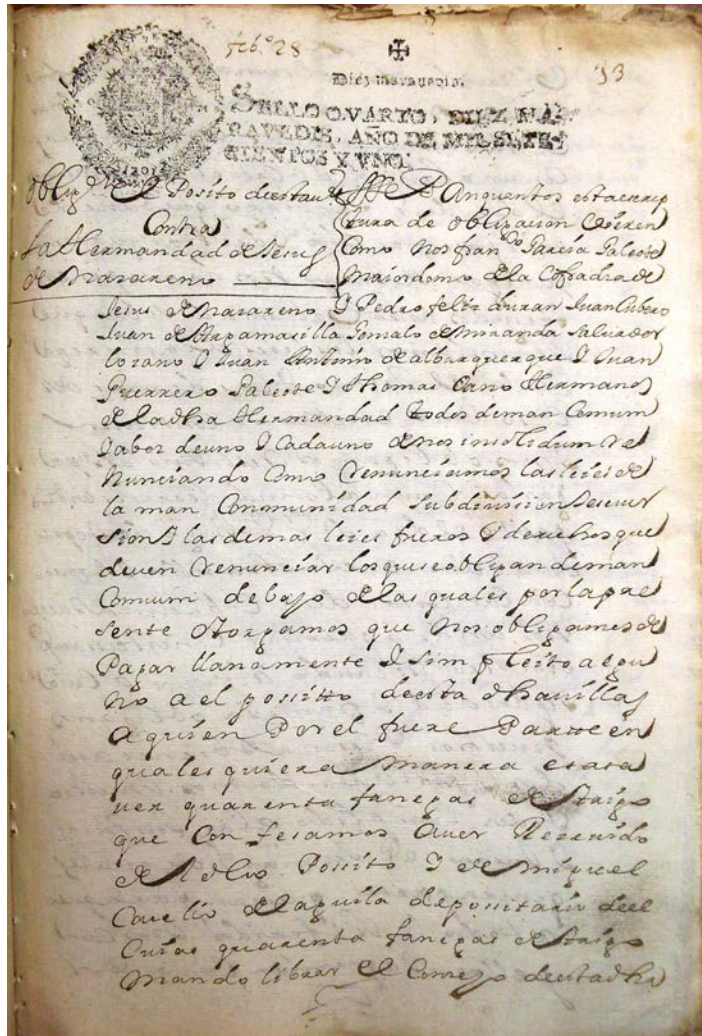 feb.º 28
13
Diez maravedis.
SELLO QVARTO, DIEZ MA-
RAVEDIS, AÑO DE MIL SETE-
CIENTOS Y VNO.
1701
Oblig.on El Posito desta
Contra
La Hermandad de Jesus
de Nazareno
SePan quantos esta escrip
tura de obligacion Vieren
Como nos fran.co Garcia Galeote
Maiordomo de la Cofradia de
Jesus de nazareno Y Pedro feliz duran Juan Cubero
Juan de Argamasilla Gonzalo de miranda Salvador
lozano Y Juan Antonio de alburquerque Y Juan
Guerrero Galeote Y thomas Cano Hermanos
de la dha Hermandad todos de man Comum
Y a boz de uno Y Cada uno de nos insolidum Re
nunciando Como Renunciamos las leies de
la man Comunidad Subdivision Y escur
sion Y las demas leies fueros Y derechos que
deven Renunciar los que se obligan de man
Comum debajo de las quales por la pre
sente Otorgamos que nos obligamos de
Pagar llanamente Y sim pleito algu
no a el possitto de esta dha villa
a quien Por el fuere Parte en
quales quiera manera es a sa
ver quarenta fanegas de trigo
que Confesamos aver Rezevido
de el dho Possito Y de miguel
de el aguila depositario de el
Cuias quarenta fanegas de trigo
mando librar el Consejo de esta dha